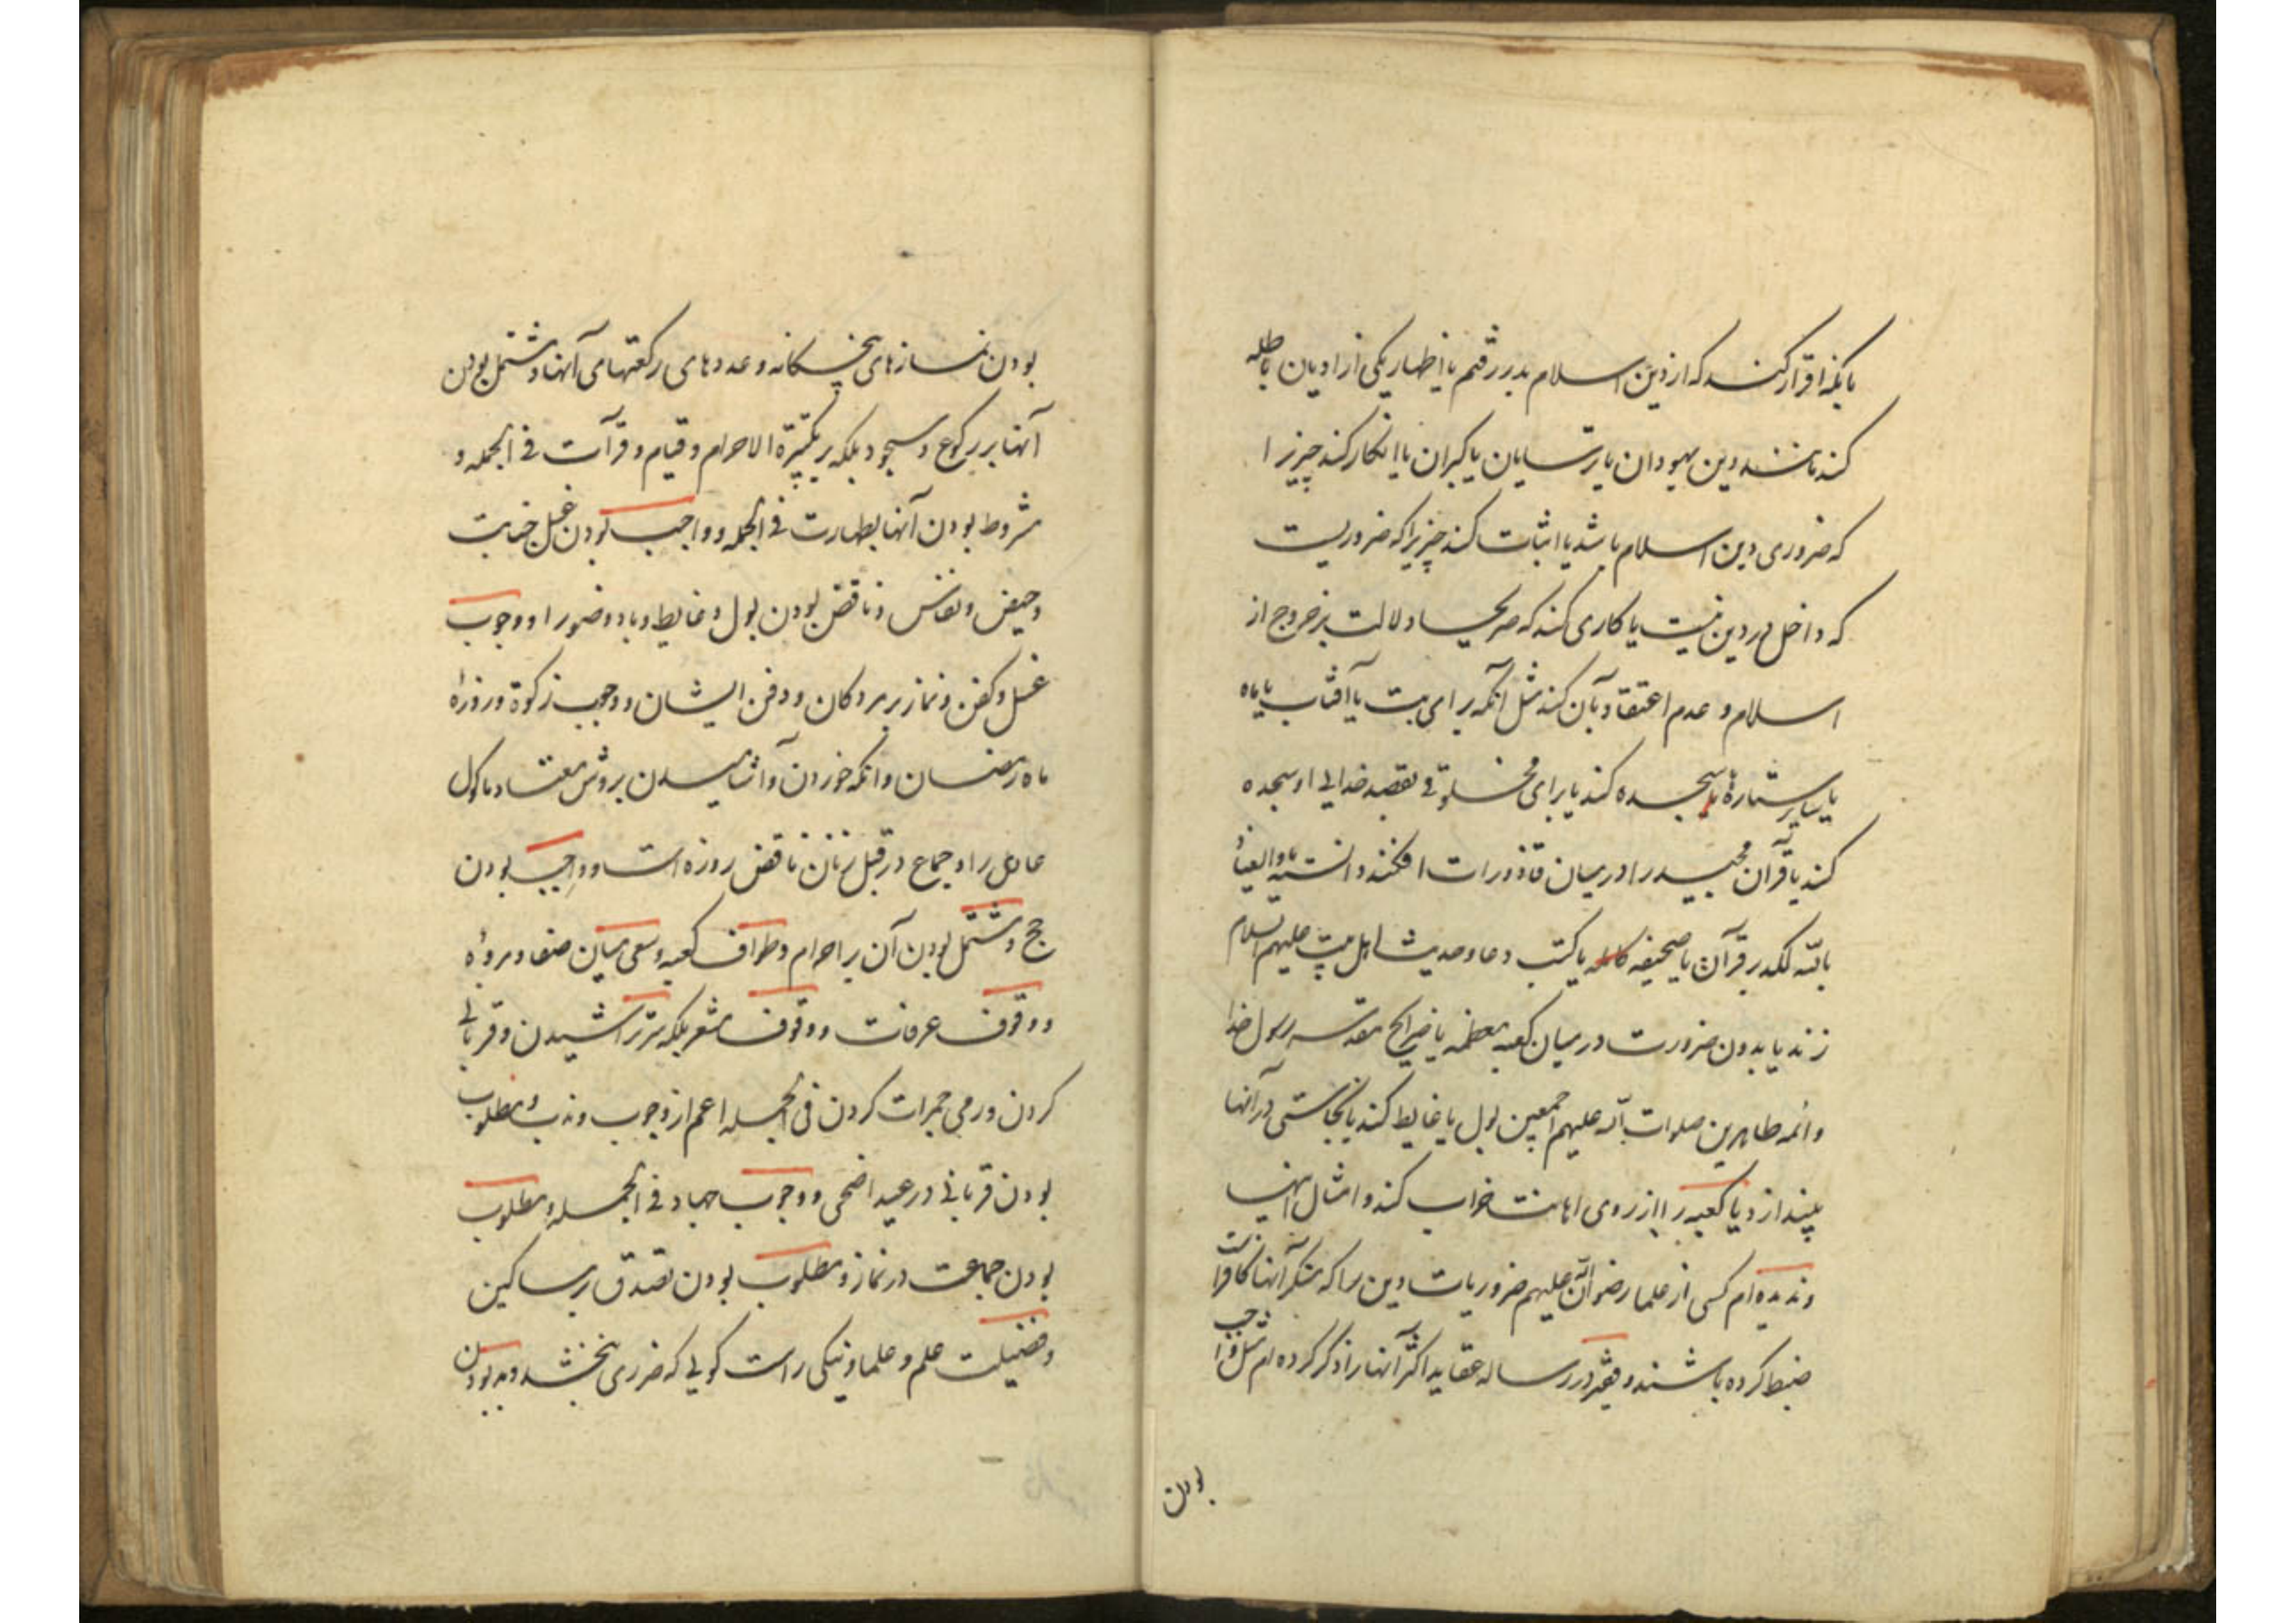 یا آنکه اقرار کند که از دین اسلام بدر رفتم یا اظهار یکی از ادیان باطله
کند مانند دین یهودان یا ترسایان یا کبران یا انکار کند چیزیرا
که ضروری دین اسلام باشد یا اثبات کند چیزیرا که ضروریست
که داخل در دین نیست یا کاری کند که صریحا دلالت بر خروج از
اسلام و عدم اعتقاد بآن کند مثل آنکه برای بت یا آفتاب یا ماه
یا سایر ستارها سجده کند یا برای مخلوقی بقصد خدایی او سجده
کند یا قرآن مجید را در میان قاذورات افکند دانسته یا والعیاذ
بالله لکد بر قرآن یا صحیفه کامله یا کتب دعا و حدیث اهل بیت علیهم السلام
زند یا بدون ضرورت در میان کعبه معظمه یا ضرایح مقدسه رسول خدا
و ائمه طاهرین صلوات الله علیهم اجمعین بول یا غایط کند یا نجاستی در آنها
بیندازد یا کعبه را از روی اهانت خراب کند و امثال اینها
و ندیده ام کسی از علما رضوان الله علیهم ضروریات دین را که منکر آنها کافر است
ضبط کرده باشند و فقیر در رساله عقاید اکثر آنها را ذکر کرده ام مثل واجب
بودن
بودن نمازهای پنجکانه و عددهای رکعتهای آنها و مشتمل بودن
آنها بر رکوع و سجود بلکه بر تکبیرة الاحرام و قیام و قرآت فی الجمله و
مشروط بودن آنها بطهارت فی الجمله و واجب بودن غسل جنابت
و حیض و نفاس و ناقض بودن بول و غایط و باد وضو را و وجوب
غسل و کفن و نماز بر مردکان و دفن ایشان و وجوب زکوة و روزه
ماه رمضان و آنکه خوردن و آشامیدن بروش معتاد ماکول
عادل را و جماع در قبل زنان ناقض روزه است و واجب بودن
حج و مشتمل بودن آن بر احرام و طواف کعبه و سعی میان صفا و مروه
و وقوف عرفات و وقوف مشعر بلکه سر تراشیدن و قربانی
کردن و رمی جمرات کردن فی الجمله اعم از وجوب و ندب و مطلوب
بودن قربانی در عید اضحی و وجوب جهاد فی الجمله و مطلوب
بودن جماعت در نماز و مطلوب بودن تصدق بر مساکین
و فضیلت علم و علما و نیکی راست کویی که ضرری نبخشد و بد بودن